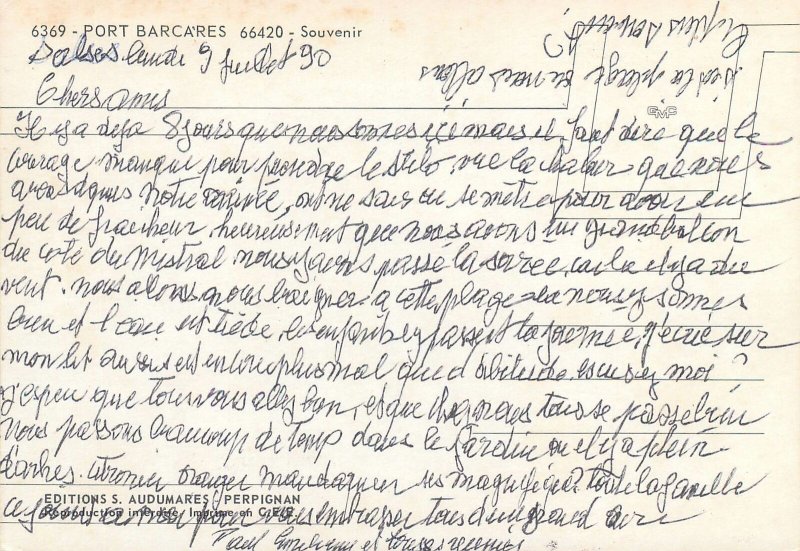 6369 - PORT BARCARES 66420 - Souvenir
Salses lundi 9 juillet 90
Chers amis
Il y a deja 8 jours que nous sommes ici mais il faut dire que le
courage manque pour prendre le stilo, vue la chaleur que nous
avons depuis notre arrivée, on ne sais ou se mettre pour avoir un
peu de fraicheur, heureusement que nous avons un grand balcon
du coté du mistral nous y avons passé la soirée, car la il y a du
vent. nous allons nous baigner a cette plage nous y sommes
bien et l'eau est tiède, les enfants y passent la journée, j'écrie sur
mon lit aussi est encore plus mal que d'abitude. escusez moi?
j'espere que tous vous allez bien, et que chez nous tous se passe bien
nous passons beaucoup de temp dans le jardin ou il y a plein
d'arbres. citronier oranger mandarinier magnifique? toute la famille
EDITIONS S. AUDUMARES / PERPIGNAN
Reproduction interdite. Imprimé en C.E.E.
pour vous embrasser tous d'un grand
Paul et tous
GMC
ou nous allons
sur la plage
souvent